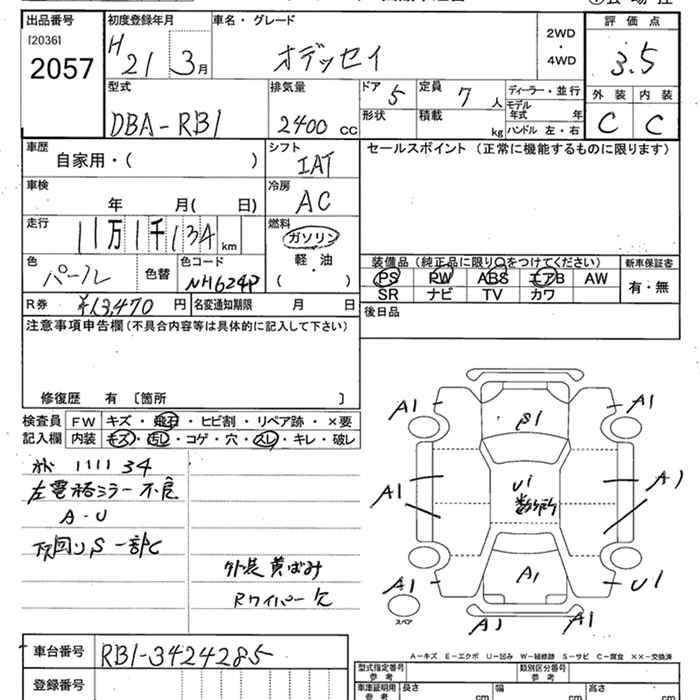 出品番号 初度登録年月 車名・グレード 評価点
[2036]
2057 H 21 3月 オデッセイ 2WD・4WD 3.5
型式 排気量 ドア 5 定員 7人 ディーラー・並行 外装 内装
DBA-RB1 2400 cc 形状 積載 kg モデル年式 年 C C
ハンドル 左・右
車歴 自家用・( ) シフト IAT セールスポイント (正常に機能するものに限ります)
車検 年 月( 日) 冷房 AC
走行 11万1千134km 燃料 ガソリン 軽油 ( )
色 パール 色替 色コード NH624P
装備品 (純正品に限り○をつけてください) 新車保証書
PS PW ABS エアB AW 有・無
SR ナビ TV カワ
R券 ¥13,470 円 名変通知期限 月 日
後日品
注意事項申告欄 (不具合内容等は具体的に記入して下さい)
修復歴 有 〔箇所 〕
検査員記入欄 FW キズ・飛石・ヒビ割・リペア跡・×要
内装 キズ・汚し・コゲ・穴・スレ・キレ・破レ
1111 34
左電格ミラー不良
A-U
下回りS 一部C
外装黄ばみ
Rワイパー欠
A1 S1 A1
A1 U1 A1
A1 A1 U1
A1 A1
スペア
A-キズ E-エクボ U-凹み W-補修跡 S-サビ C-腐食 ××-交換済
車台番号 RB1-3424285
登録番号
型式指定番号 参考 類別区分番号 参考
車庫証明用 参考 長さ cm 幅 cm 高さ cm